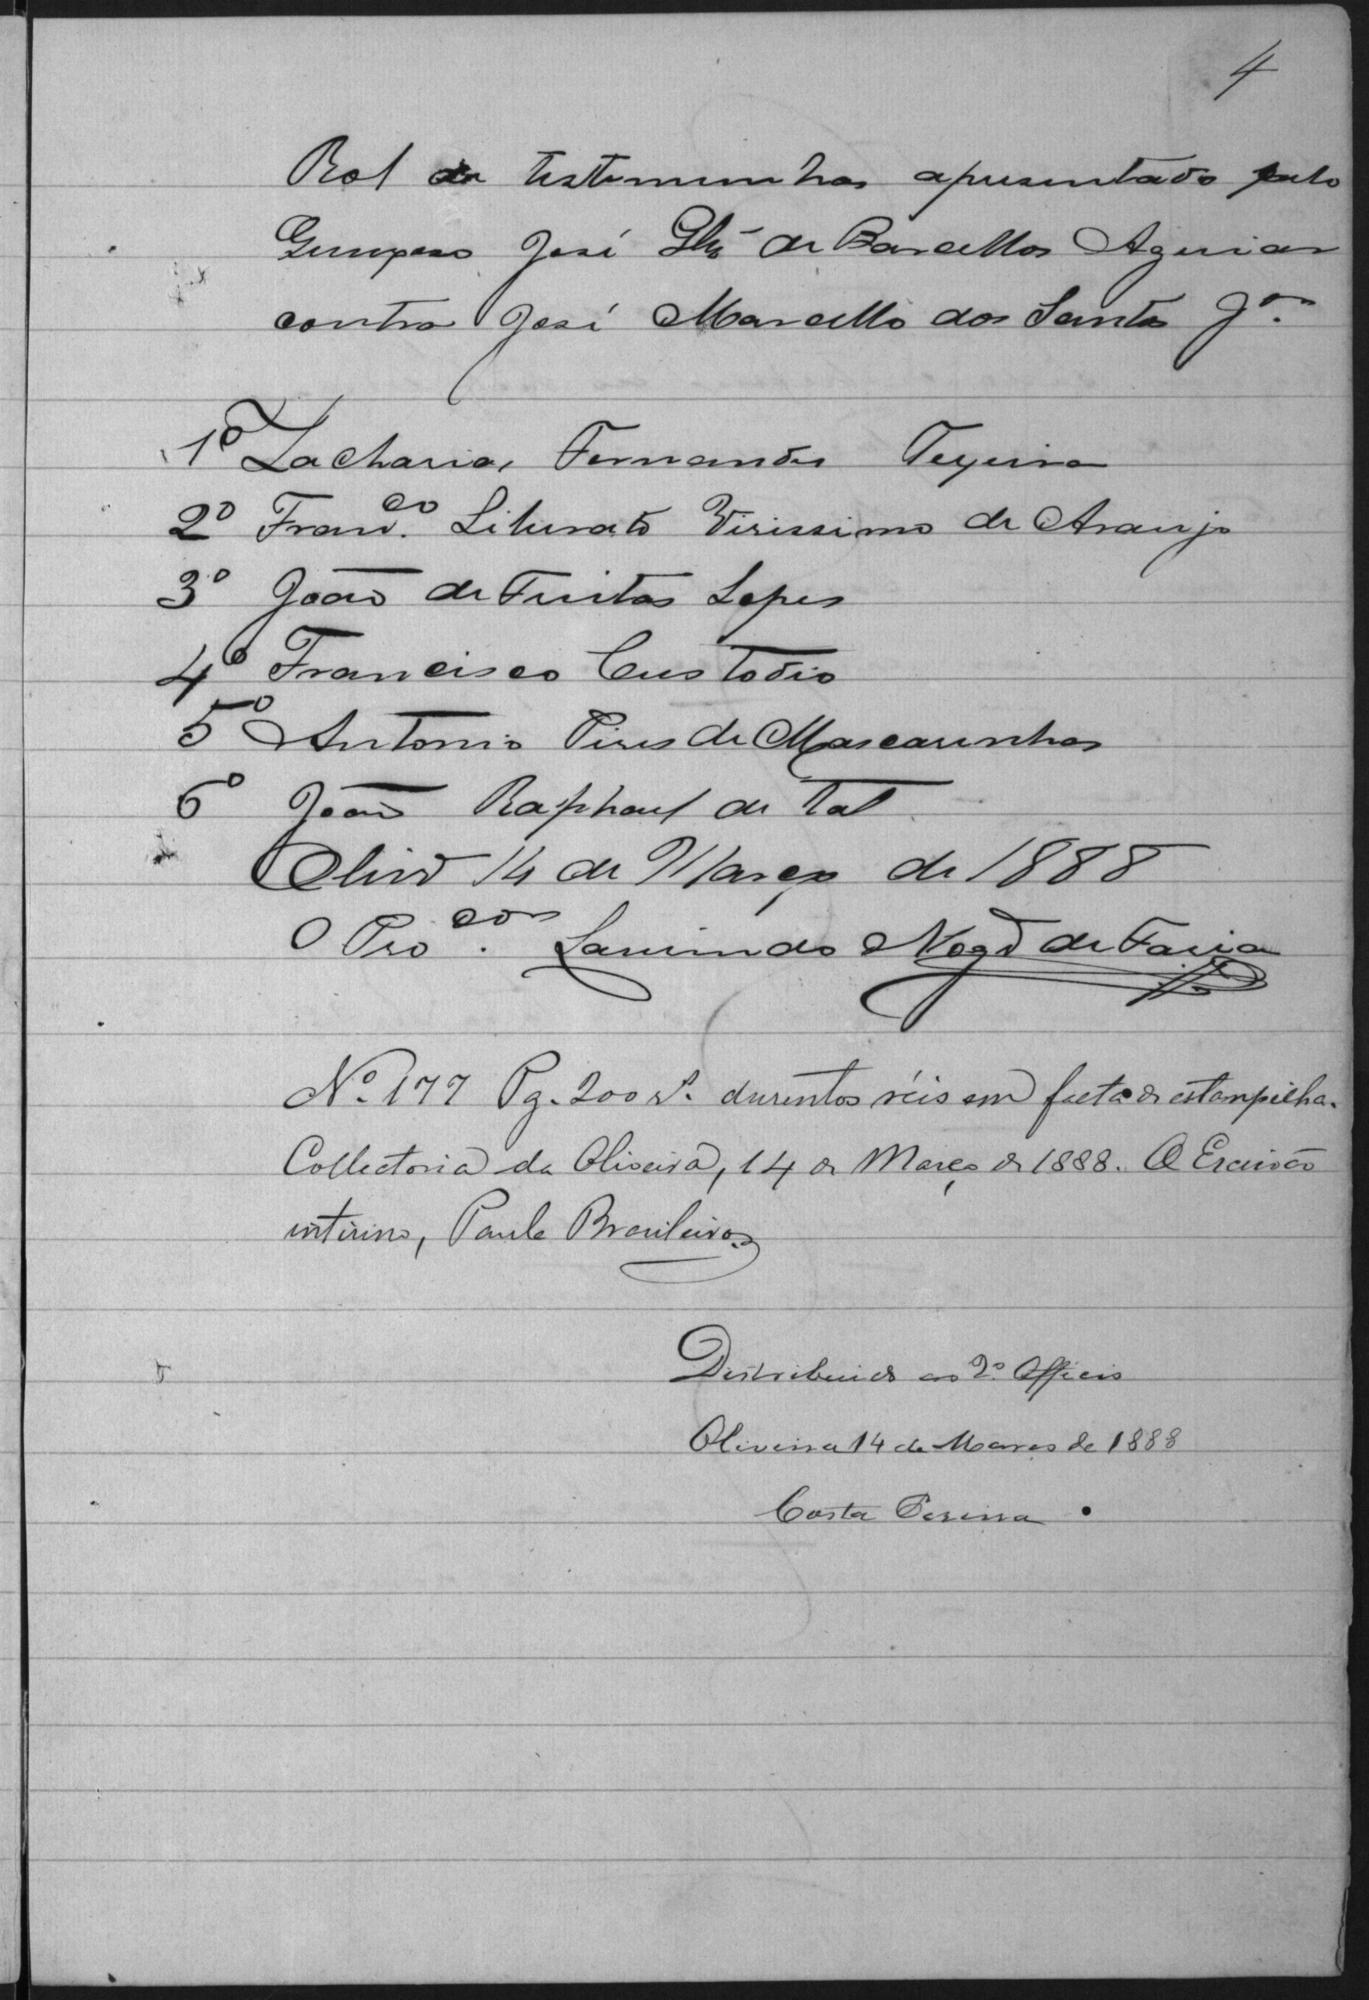 4
Rol de testemunhas apresentado pelo
José de Barcellos Aguiar
contra José Marcello dos Santos Jor.
1º Zacharias Fernandes Teyxeira
2º Francco. Liberato Virissimo de Araujo
3º João de Freitas Lopes
4º Francisco Custodio
5º Antonio Pires de Mascarenhas
6º João Raphael de tal
Olivra 14 de Março de 1888
O Procor. Laurindo Nogra de Faria
Nº 177 Pg. 200 rs. duzentos réis em falta de estampilha.
Collectoria da Oliveira, 14 de Março de 1888. O Escrivão
interino, Paula Brasileiro
Distribuido ao 2º Officio
Oliveira 14 de Março de 1888
Costa Pereira